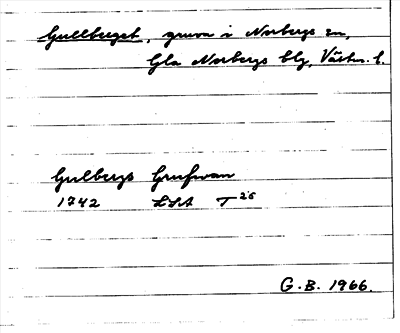 Gullberget, gruva i Norbergs sn,
Gla Norbergs blg, Västm. l.
Gulbergs Grufwan
1742 LSA T 26
G.B. 1966.